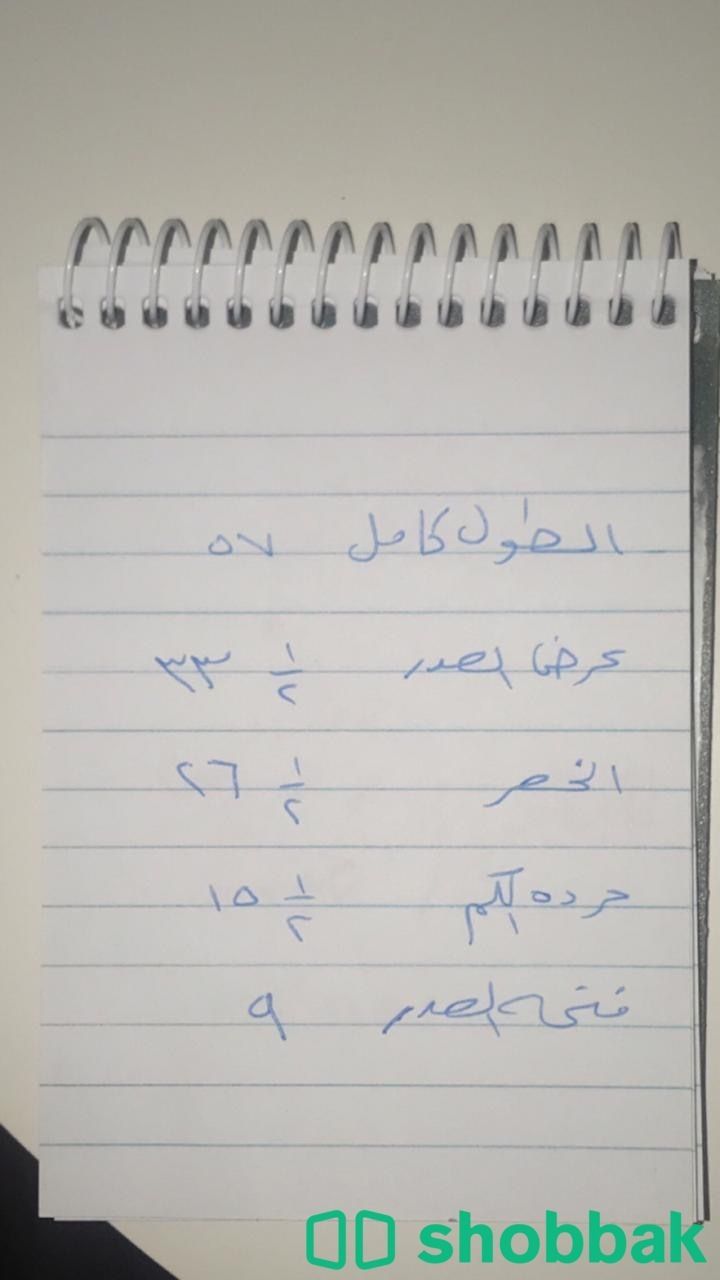 الطول كامل ٥٧
عرض الصدر ٣٣ ١/٢
الخصر ٢٦ ١/٢
حرده الكم ١٥ ١/٢
فتحه الصدر ٩
shobbak